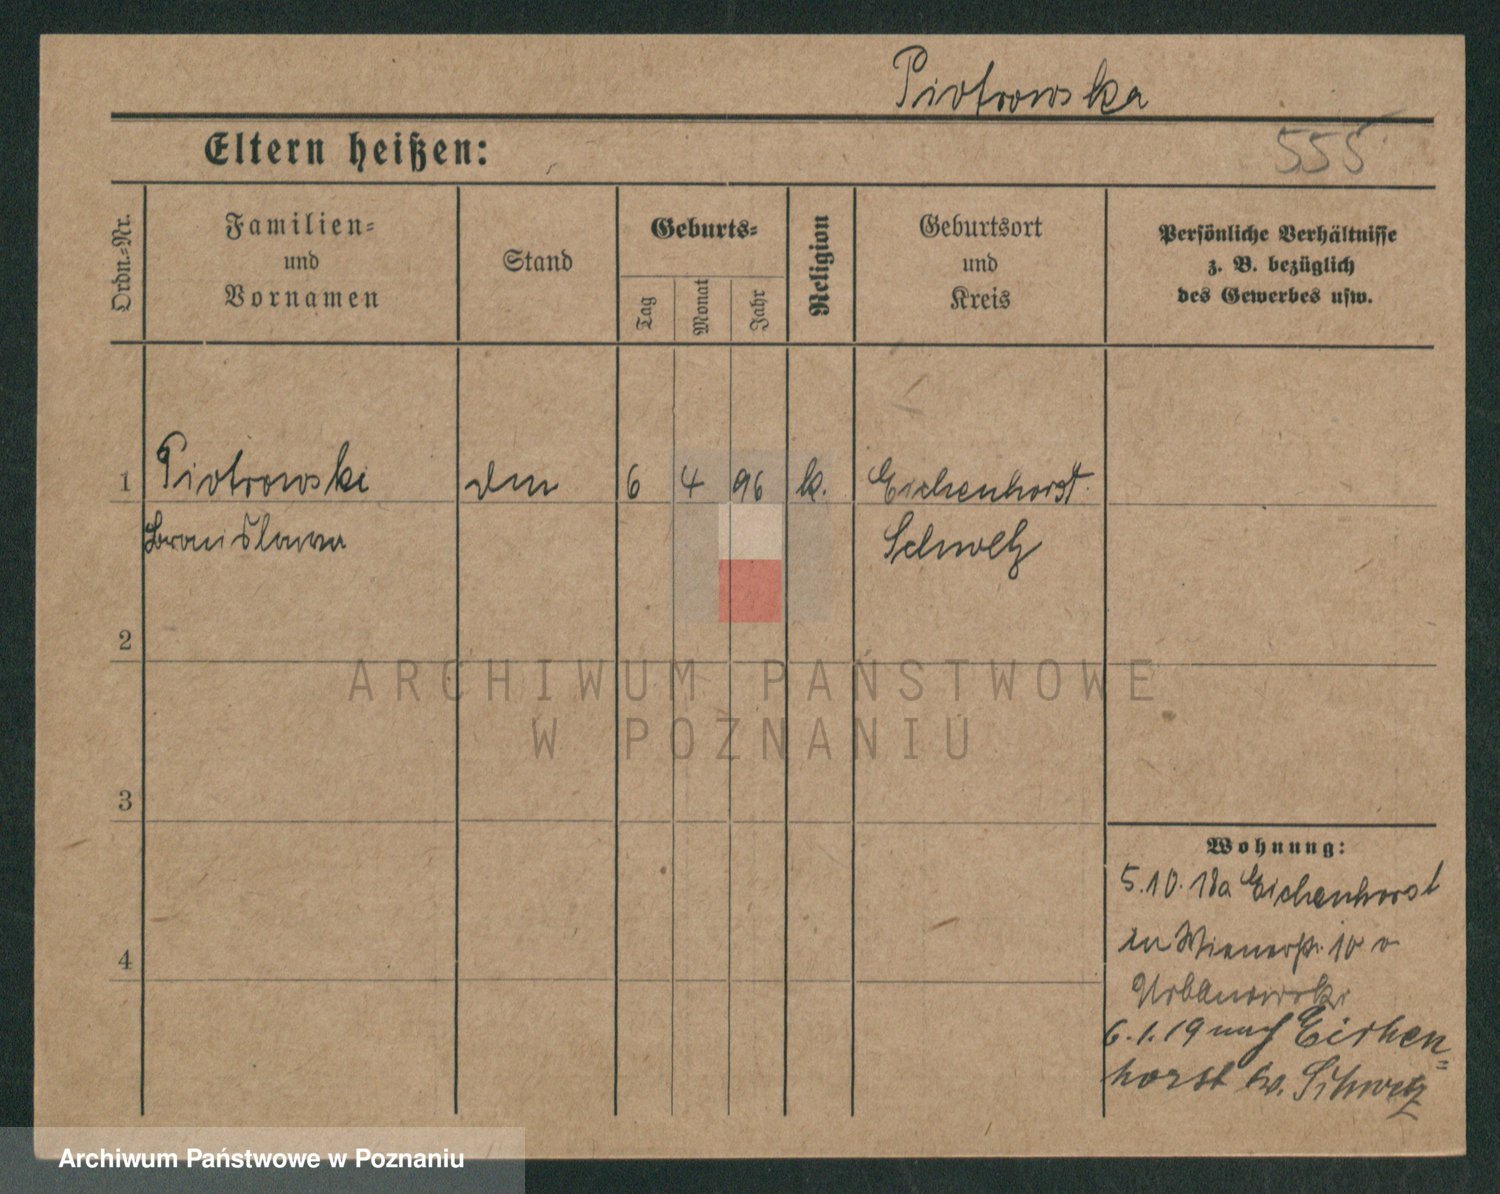 Piotrowska
555
Eltern heißen:
Ordn.-Nr.
Familien-
und
Vornamen
Stand
Geburts-
Tag
Monat
Jahr
Religion
Geburtsort
und
Kreis
Persönliche Verhältnisse
z. B. bezüglich
des Gewerbes usw.
1 Piotrowski 6 4 96 k. Eichenhorst
Bronislawa Schwetz
2
ARCHIWUM PAŃSTWOWE
W POZNANIU
3
Wohnung:
5.10.18 a Eichenhorst
in Wienerstr. 10
Urbanowski
4
6.1.19 nach Eichen=
horst kr. Schwetz
Archiwum Państwowe w Poznaniu